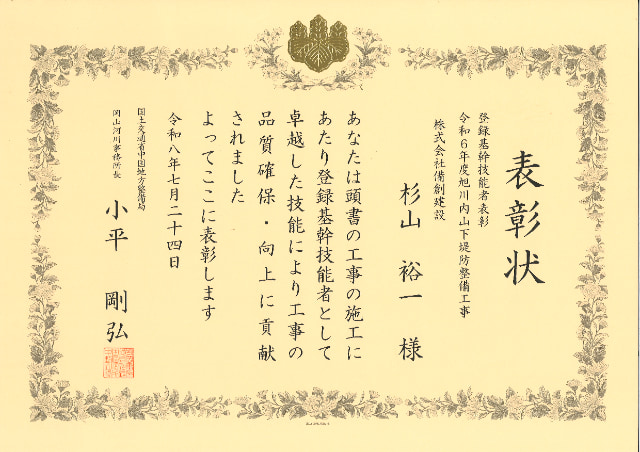 表彰状
登録基幹技能者表彰
令和6年度旭川内山下堤防整備工事
株式会社備創建設
杉山 裕一 様
あなたは頭書の工事の施工に
あたり登録基幹技能者として
卓越した技能により工事の
品質確保・向上に貢献
されました
よってここに表彰します
令和八年七月二十四日
国土交通省中国地方整備局
岡山河川事務所長
小平 剛弘